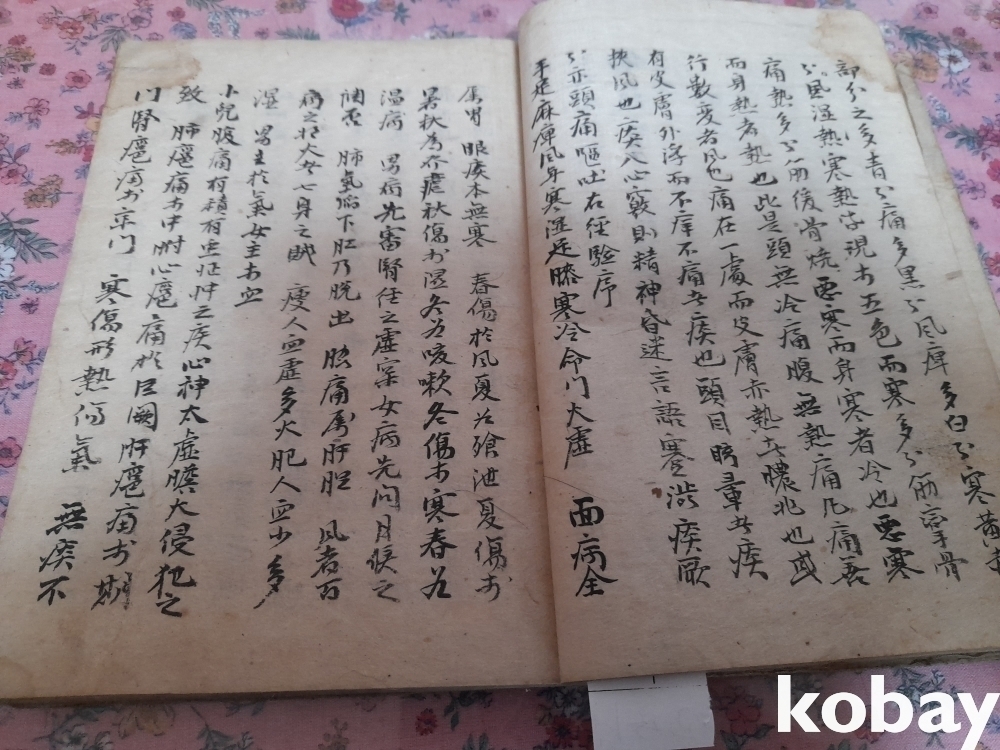 部分之多青則痛多黑則風痺多白則寒黃赤
則風湿熱寒熱字現於五色而寒多則筋攣骨
痛熱多則筋緩骨燒惡寒而身寒者冷也惡寒
而身熱者熱也此是頭無冷痛腹無熱痛凡痛善
行數变者風也痛在一處而皮膚亦熱者膿兆也或
有皮膚外浮而不痒不痛者痰也頭目眩暈者痰
挾風也痰入心竅則精神昏迷言語蹇澁痰厥
則亦頭痛嘔吐右經驗序
手足麻痺風身寒湿足膝寒冷命門火虛 面病全
屬胃 眼疾本無寒 春傷於風夏必飱泄夏傷於
暑秋為痎瘧秋傷於湿冬为咳嗽冬傷於寒春为
温病 男病先審腎任之虛寔女病先问月候之
调否 肺氣陷下肛乃脫出 脇痛属肝胆 風者百
病之长火者七身之賊 瘦人血虛多火肥人血少多
湿 男主於氣女主於血
小兒腹痛有積有虫怔忡之疾心神太虛膽大侵犯之
致 肺瘧痛於中胕心瘧痛於巨阙肝瘧痛於期
门腎瘧痛於京门 寒傷形熱傷氣 無痰不
kobay